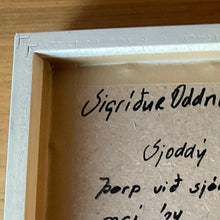 Sigríður Oddn
Sjoddý
Þorp við sjó
maí '24